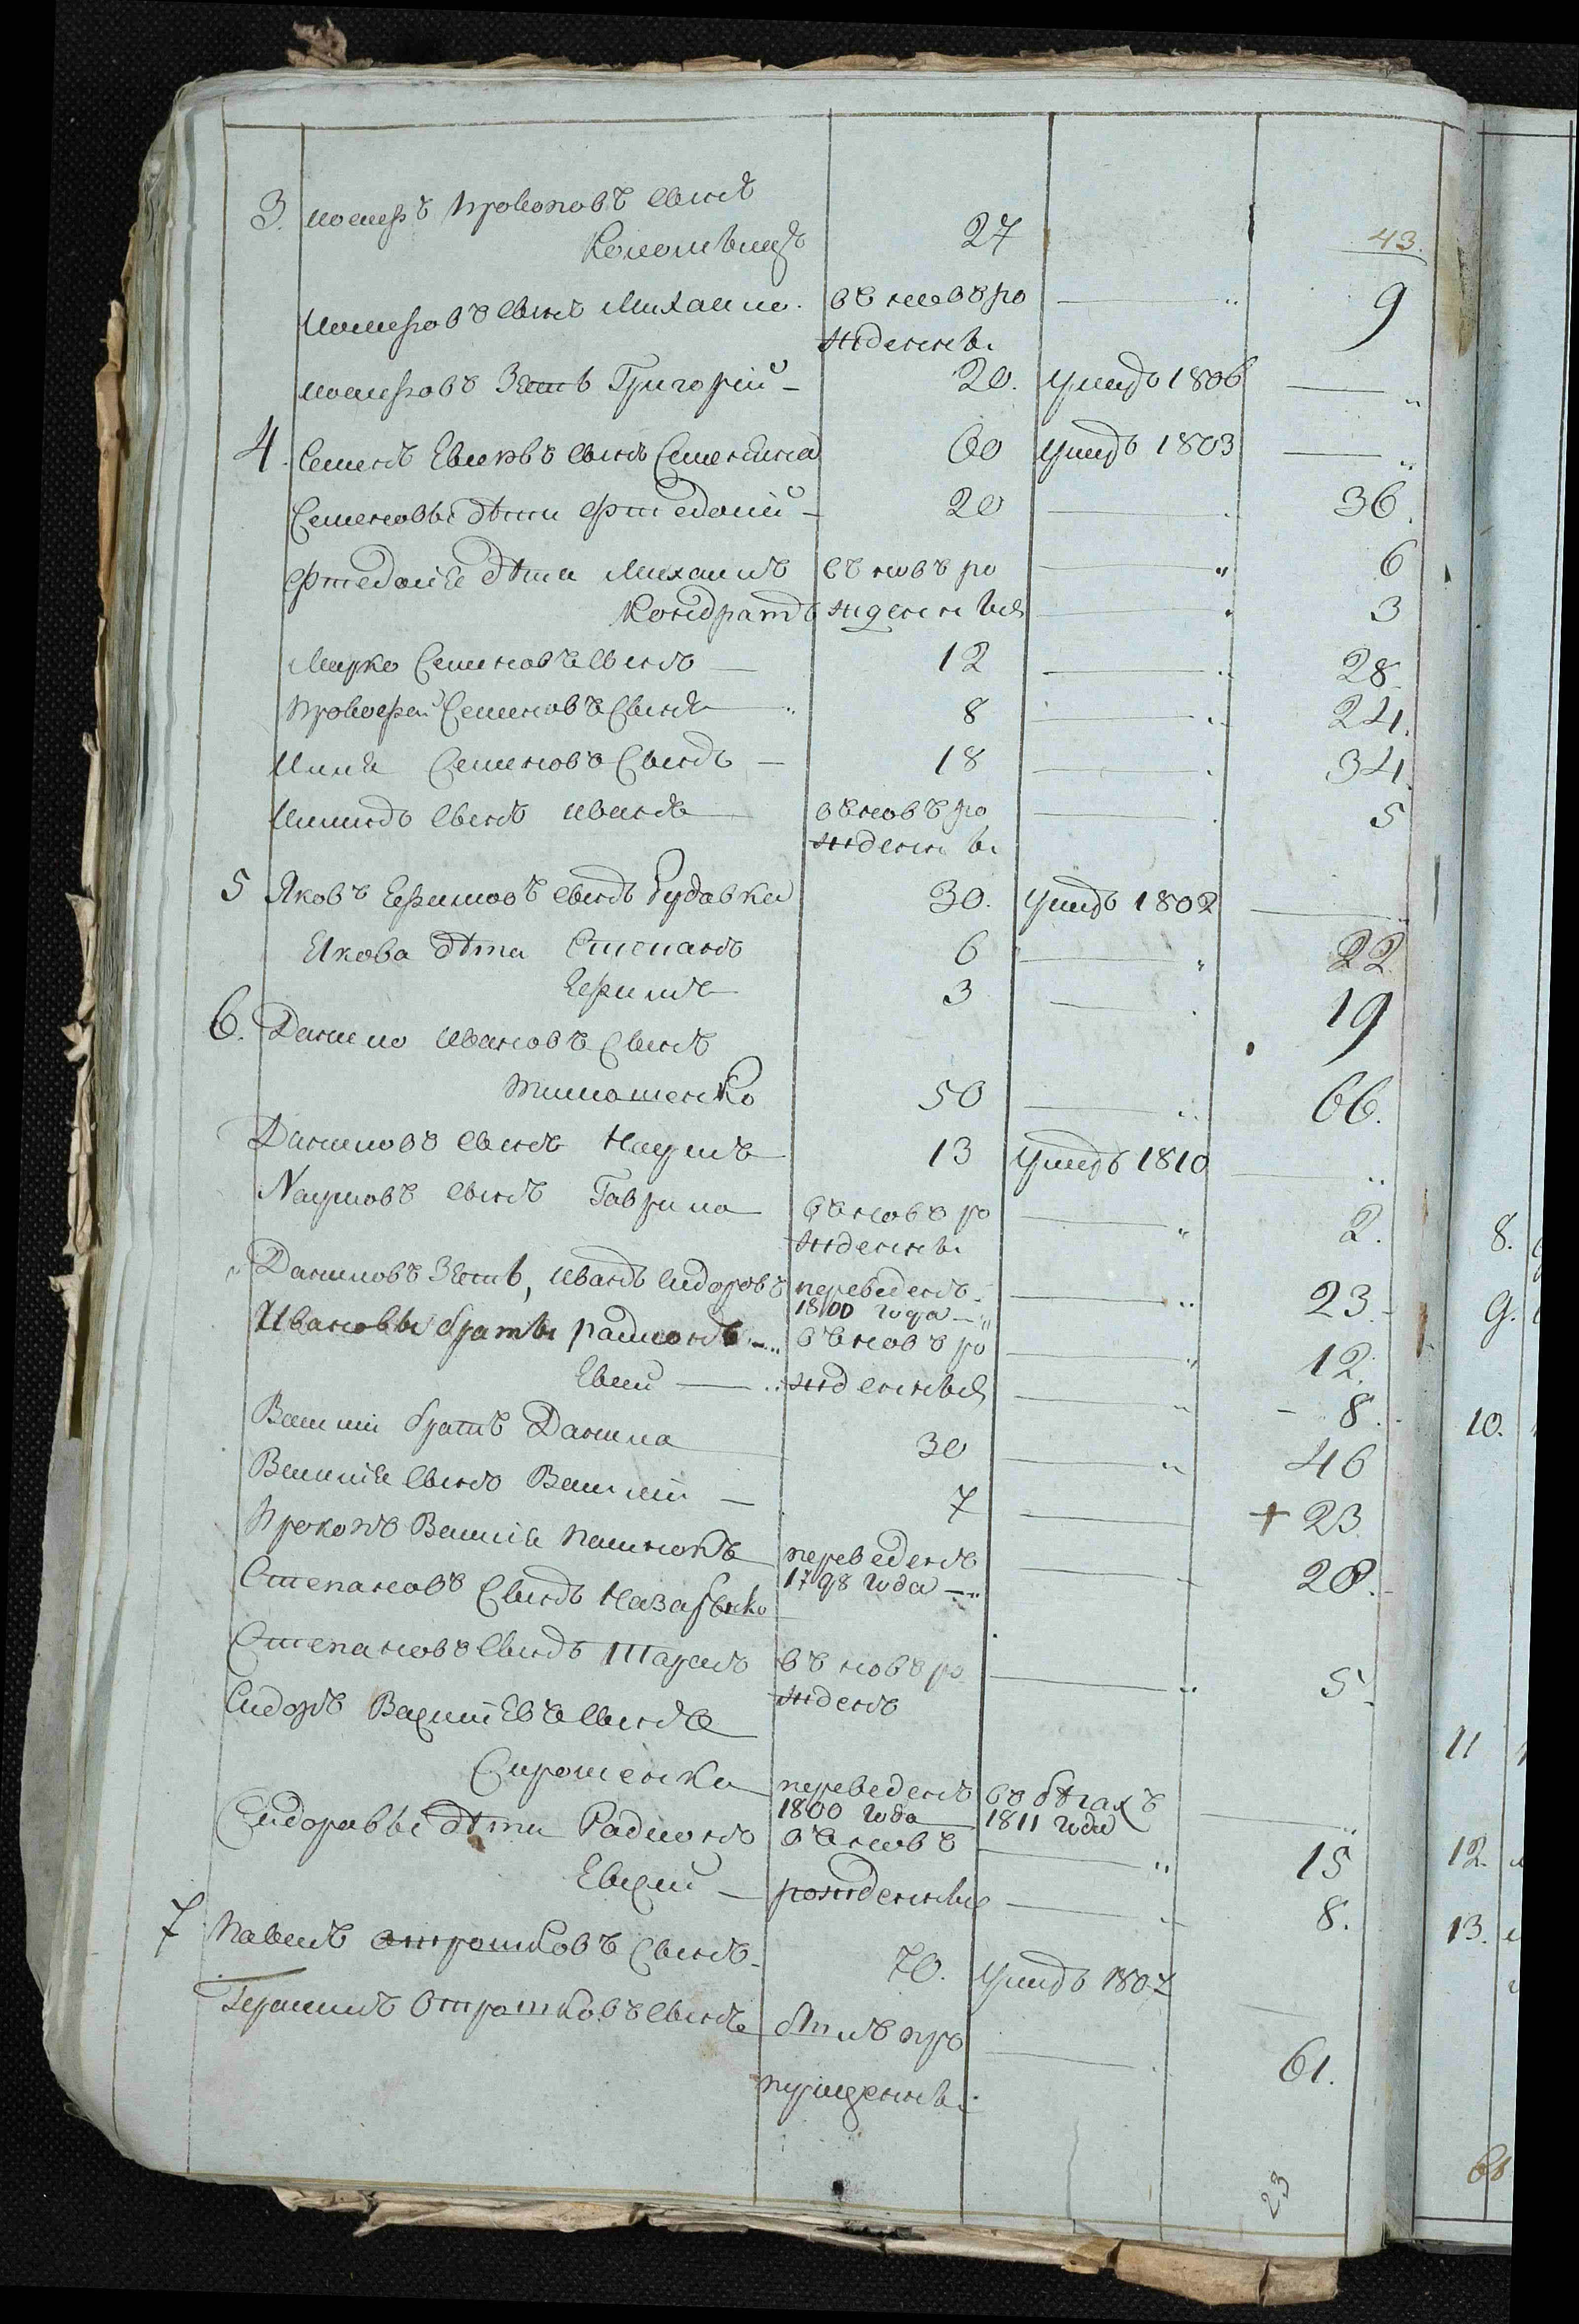 3. Iосифъ Прокоповъ сынъ
Коломѣецъ 27 43.
Iосифовъ сынъ Михаило. въ новъ ро — „ 9
жденны.
Iосифовъ зять Григорій — 20. умеръ 1806 — „
4. Семенъ сынъ 60 умеръ 1803 — „
Семеновы дѣти — 20 — 36.
дѣти Михаилъ въ новъ ро — „ 6
Кондратъ жденныя — „ 3
Марко Семеновъ сынъ — 12 — „ 28.
Прокофей Семеновъ сынъ — „ 8 — „ 24.
Илья Семеновъ сынъ — 18 — „ 34.
Ильинъ сынъ Иванъ — въ новъ ро — 5
жденны.
5 Яковъ Ефимовъ сынъ Рудавка 30. умеръ 1802 — „
Якова дѣти Степанъ 6 — „ 22.
Ефимъ — 3 — 19
6. Данило Ивановъ сынъ
Тимошенко 50 — „ 66.
Даниловъ сынъ Наумъ — 13 умеръ 1810 — „
Наумовъ сынъ Гаврила — въ новъ ро — „ 2.
жденны.
Даниловъ зять, Иванъ Сидоровъ переведенъ — „ 23.
1800 года — „
Ивановы братьи Радионъ — „ въ новъ ро — „ 12.
Евсей — „ жденныя — „ 8.
Василій братъ Данила — 30 — „ 46
Василія сынъ Василій — 7 — + 23
Прокопъ Василія переведенъ — 20.
1798 года — „
Степановъ сынъ
Степановъ сынъ Тарасъ въ новъ ро — „ 5.
жденъ
Сидоръ сынъ
Сирошенка переведенъ въ бѣгахъ — „
1800 года 1811 года
Сидоравы дѣти Радионъ въ новъ — „ 15
Евсей — рожденные — 8.
7 Павелъ Отрошковъ сынъ — 70. умеръ 1807 —
Герасимъ Отрошковъ сынъ былъ про — 61.
пущенны.
23
8.
9.
10.
11
12.
13.